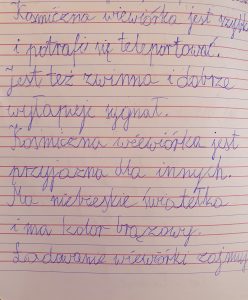 Kosmiczna wiewiórka jest szybka
i potrafi się teleportować.
Jest też zwinna i dobrze
wyłapuje sygnał.
Kosmiczna wiewiórka jest
przyjazna dla innych.
Ma niebieskie światełka
i ma kolor brązowy.
Ładowanie wiewiórki zajmuje